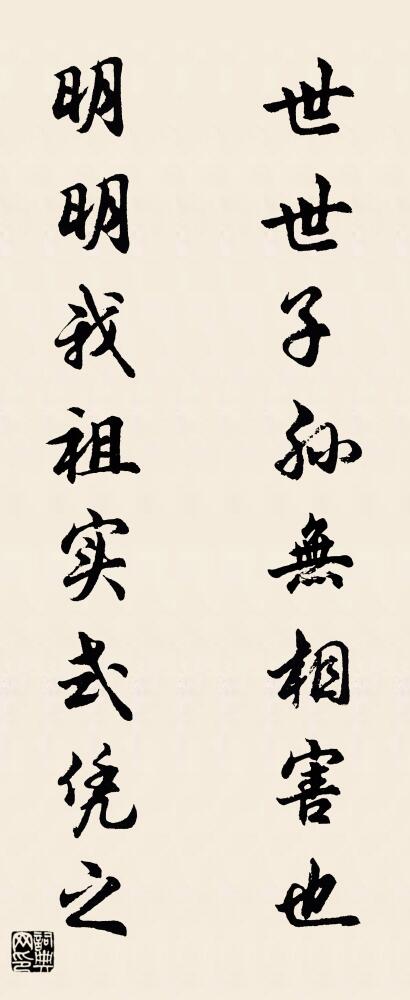 世世子孙無相害也
明明我祖实式凭之
詞典网印